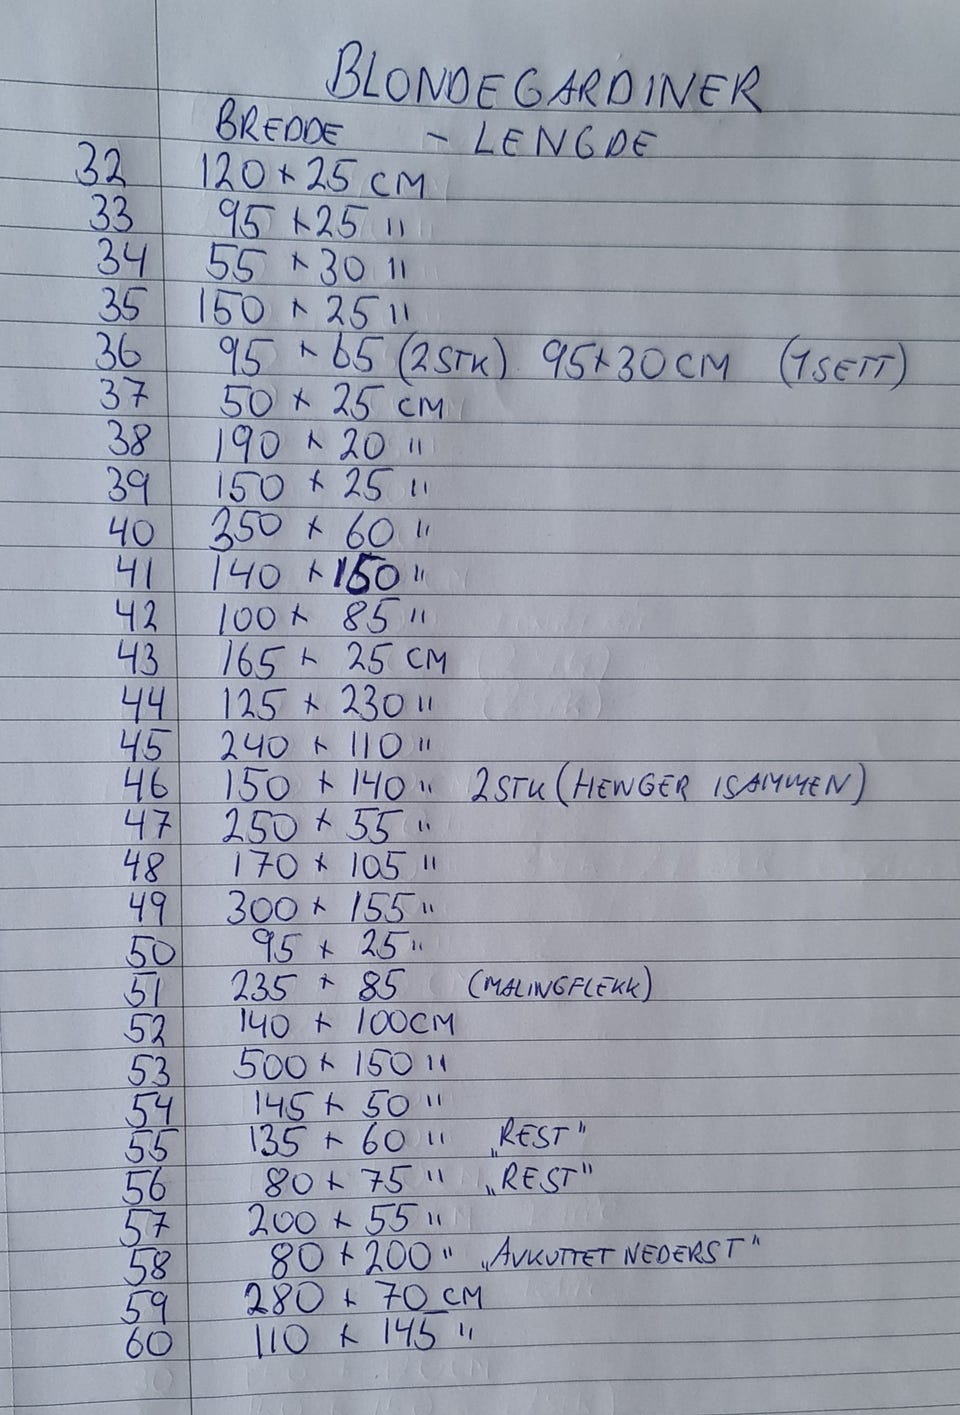 BLONDEGARDINER
BREDDE - LENGDE
32 120 x 25 CM
33 95 x 25 "
34 55 x 30 "
35 150 x 25 "
36 95 x 65 (2 STK) 95x30 CM (1 SETT)
37 50 x 25 CM
38 190 x 20 "
39 150 x 25 "
40 350 x 60 "
41 140 x 150 "
42 100 x 85 "
43 165 x 25 CM
44 125 x 230 "
45 240 x 110 "
46 150 x 140 " 2 STK (HENGER ISAMMEN)
47 250 x 55 "
48 170 x 105 "
49 300 x 155 "
50 95 x 25 "
51 235 x 85 (MALINGFLEKK)
52 140 x 100 CM
53 500 x 150 "
54 145 x 50 "
55 135 x 60 " „REST"
56 80 x 75 " „REST"
57 200 x 55 "
58 80 x 200 " „AVKUTTET NEDERST"
59 280 x 70 CM
60 110 x 145 "